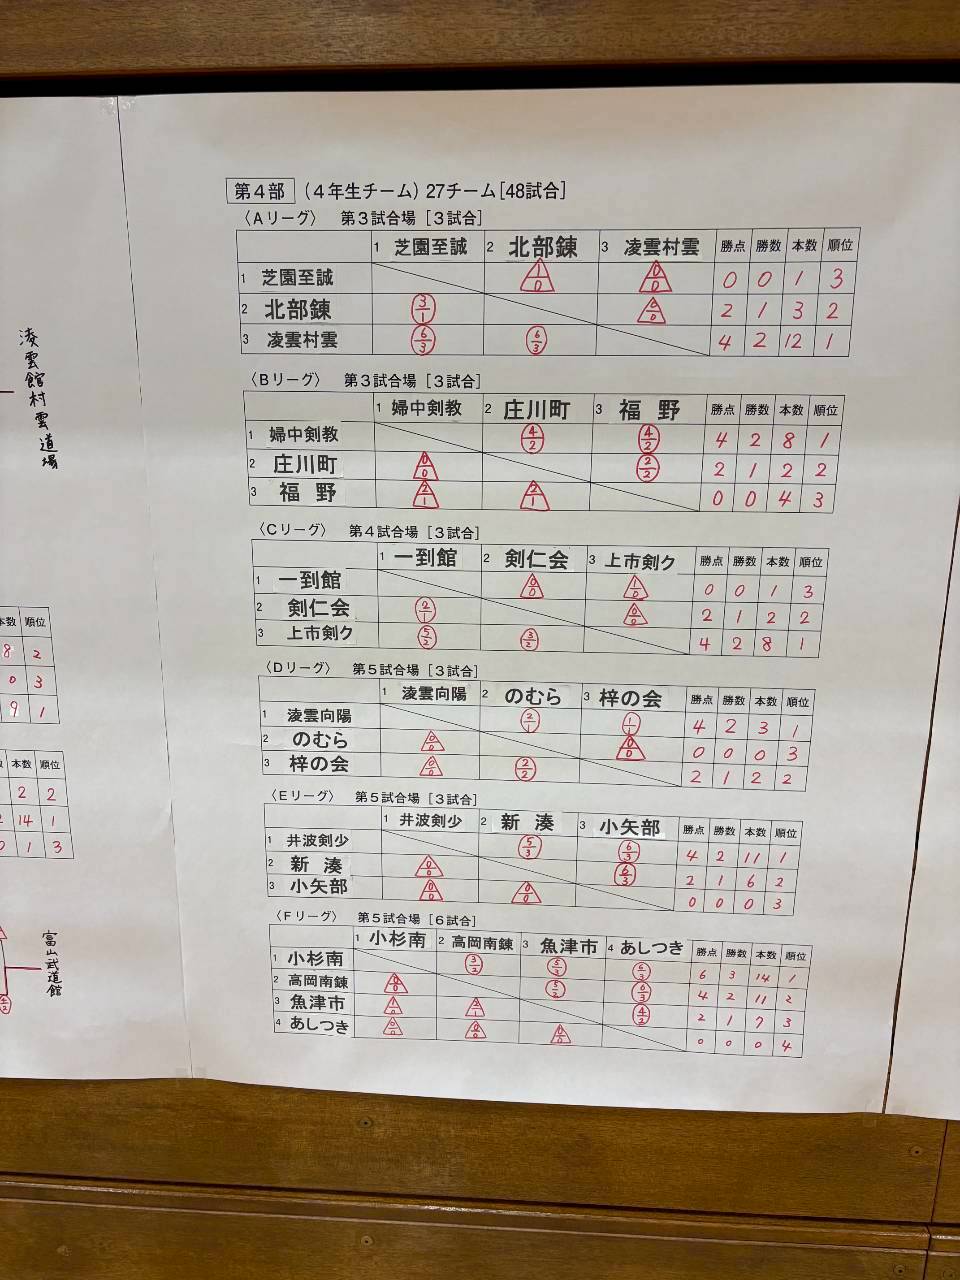 第4部 (4年生チーム) 27チーム[48試合]
〈Aリーグ〉 第3試合場 [3試合]
1 芝園至誠 2 北部錬 3 凌雲村雲 勝点 勝数 本数 順位
1 芝園至誠 1/0 0/0 0 0 1 3
2 北部錬 3/1 0/0 2 1 3 2
3 凌雲村雲 6/3 6/3 4 2 12 1
〈Bリーグ〉 第3試合場 [3試合]
1 婦中剣教 2 庄川町 3 福野 勝点 勝数 本数 順位
1 婦中剣教 4/2 4/2 4 2 8 1
2 庄川町 0/0 2/2 2 1 2 2
3 福野 2/1 2/1 0 0 4 3
〈Cリーグ〉 第4試合場 [3試合]
1 一到館 2 剣仁会 3 上市剣ク 勝点 勝数 本数 順位
1 一到館 0/0 1/0 0 0 1 3
2 剣仁会 2/1 0/0 2 1 2 2
3 上市剣ク 5/2 3/2 4 2 8 1
〈Dリーグ〉 第5試合場 [3試合]
1 淩雲向陽 2 のむら 3 梓の会 勝点 勝数 本数 順位
1 淩雲向陽 2/1 1/1 4 2 3 1
2 のむら 0/0 0/0 0 0 0 3
3 梓の会 0/0 2/2 2 1 2 2
〈Eリーグ〉 第5試合場 [3試合]
1 井波剣少 2 新湊 3 小矢部 勝点 勝数 本数 順位
1 井波剣少 5/3 6/3 4 2 11 1
2 新湊 0/0 6/3 2 1 6 2
3 小矢部 0/0 0/0 0 0 0 3
〈Fリーグ〉 第5試合場 [6試合]
1 小杉南 2 高岡南錬 3 魚津市 4 あしつき 勝点 勝数 本数 順位
1 小杉南 3/2 5/3 6/3 6 3 14 1
2 高岡南錬 0/0 5/2 6/3 4 2 11 2
3 魚津市 1/0 2/1 4/2 2 1 7 3
4 あしつき 0/0 0/0 0/0 0 0 0 4
淩雲館村雲道場
本数 順位
8 2
0 3
9 1
本数 順位
2 2
14 1
1 3
富山武道館